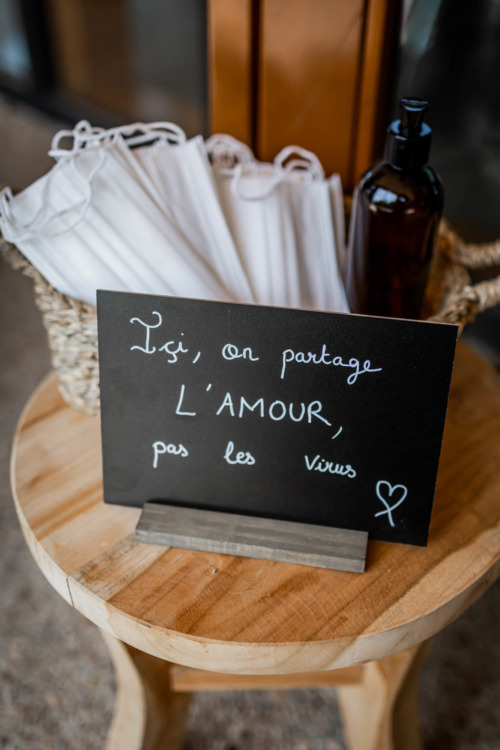 Içi, on partage
L'AMOUR,
pas les Virus